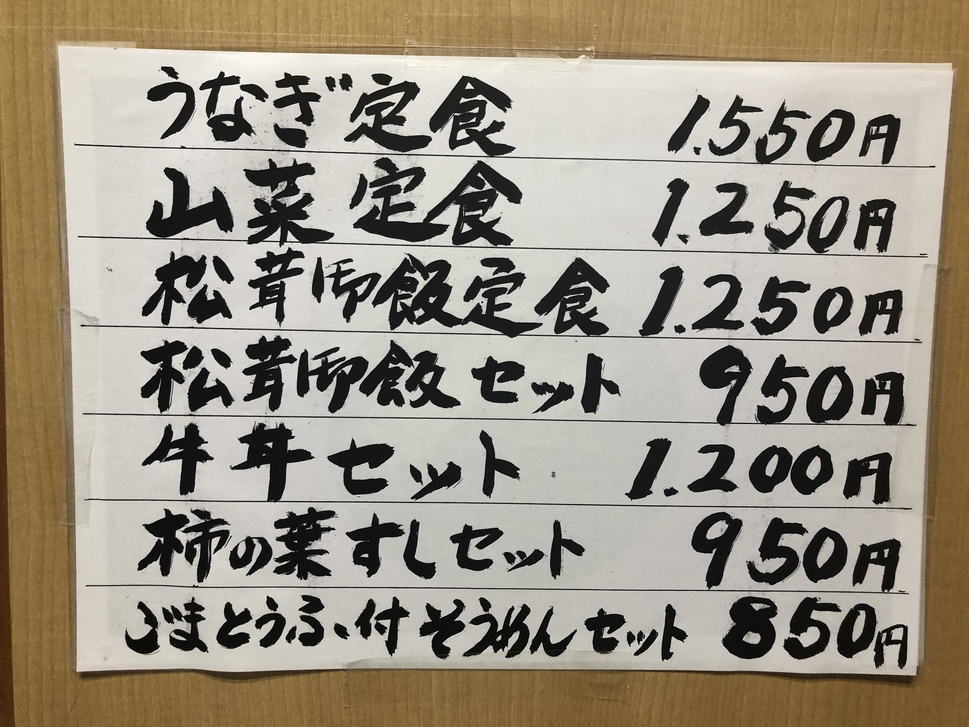 うなぎ定食 1.550円
山菜定食 1.250円
松茸御飯定食 1.250円
松茸御飯セット 950円
牛丼セット 1.200円
柿の葉すしセット 950円
ごまとうふ、付そうめんセット 850円